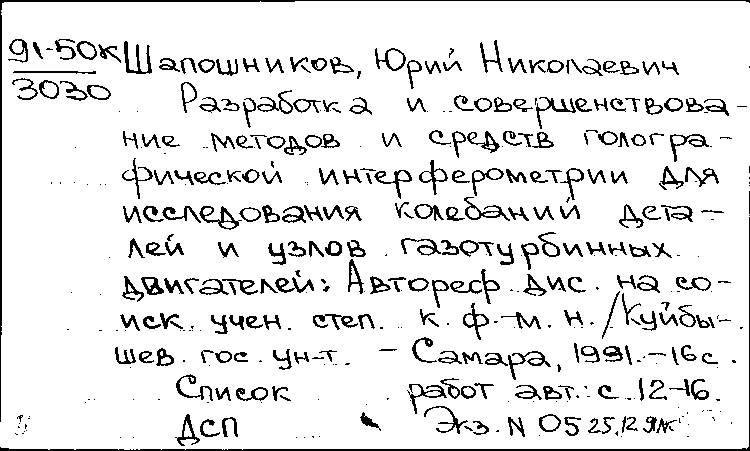 91-50к Шапошников, Юрий Николаевич
3030
Разработка и совершенствова-
ние методов и средств гологра-
фической интерферометрии для
исследования колебаний дета-
лей и узлов газотурбинных
двигателей: Автореф. дис. на со-
иск. учен. степ. к. ф.-м. н. / Куйбы-
шев. гос. ун-т. - Самара, 1991. - 16 с.
Список работ авт.: с. 12-16.
ДСП Экз. N 05 25.12.91